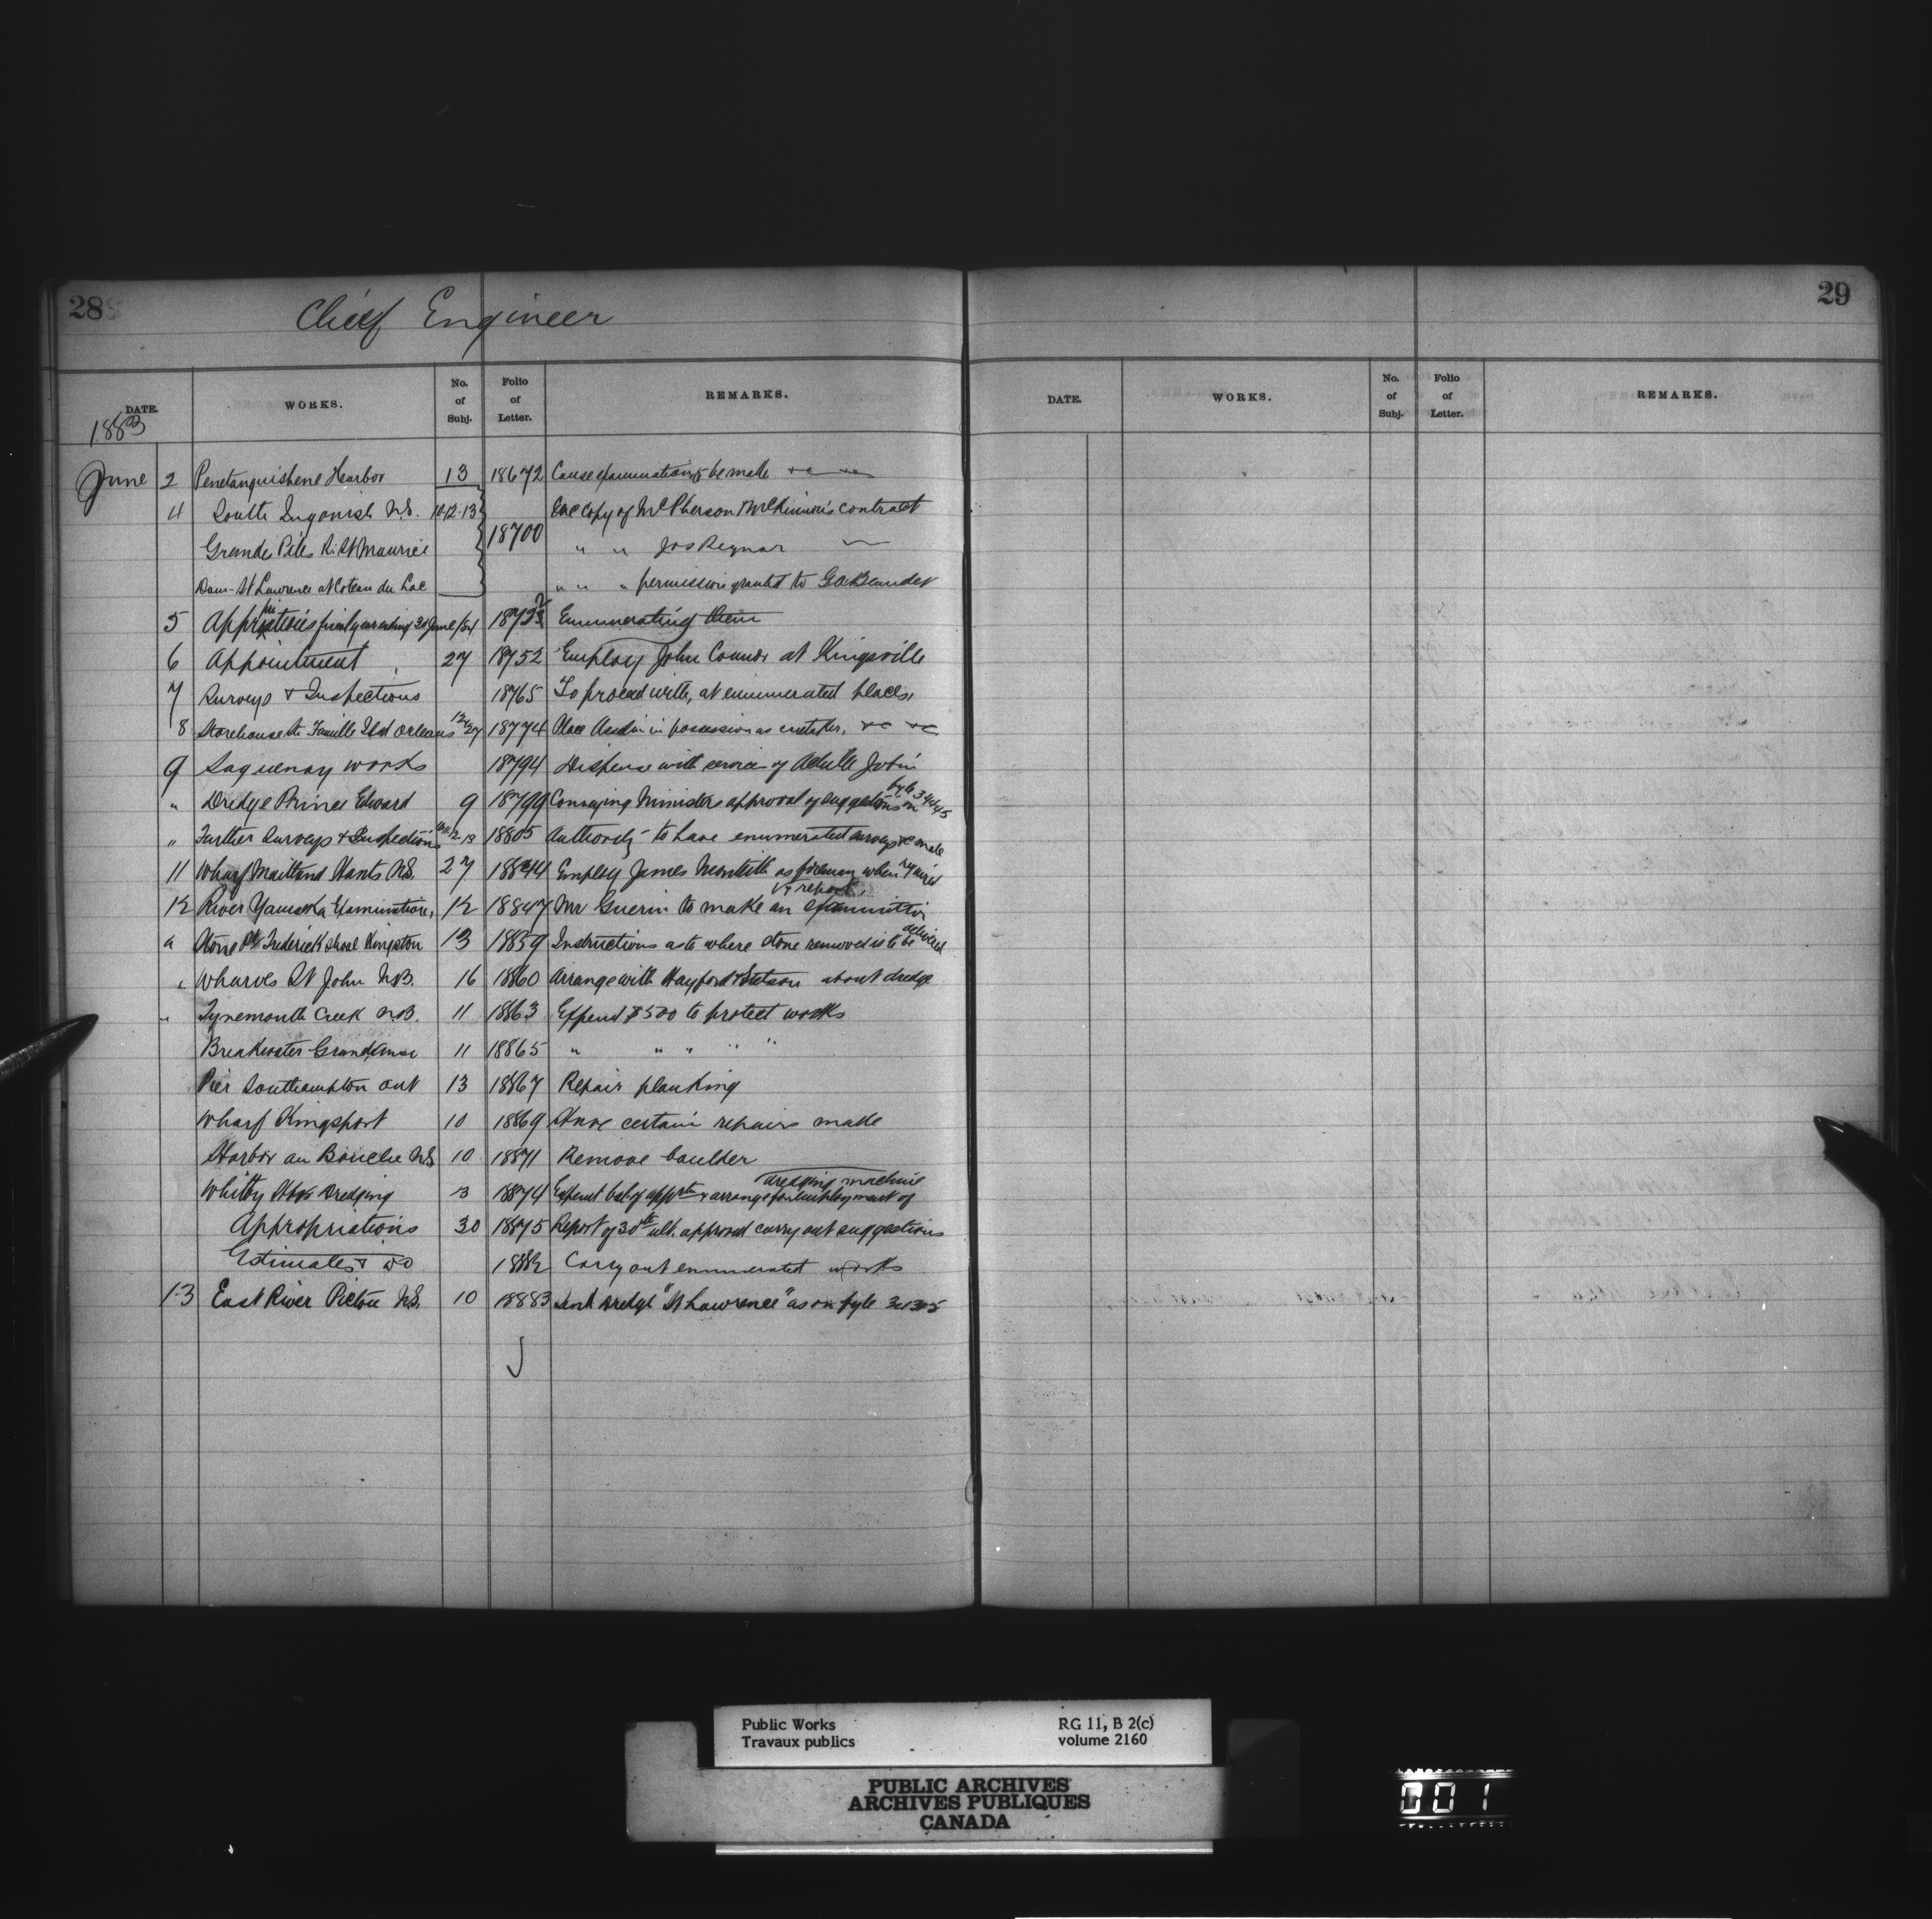 28
Chief Engineer
DATE.
WORKS.
No. of Subj.
Folio of Letter.
REMARKS.
1883
June 2 Penetanguishene Harbor 13 18672 Cause examination to be made &c
4 South Ingonish N.S. 10.12.13 18700 Enc copy of McPherson & McKinnon's contract
Grandes Piles R. St Maurice " " Jos Regnar
Dam- St Lawrence at Coteau du Lac " " " permission granted to G A Beaudet
5 Appriations fiscal year ending 30 June/84 18723 Enumerating them
6 Appointment 27 18752 Employ John Connor at Kingsville
7 Surveys & Inspections 18765 To proceed with, at enumerated places
8 Storehouse Ste Famille Isld Orleans 12/27 18774 Place in possession as caretaker, &c &c
9 Saguenay works 18794 Dispense with services of Achille Jobin
" Dredge Prince Edward 9 18799 Conveying Ministers approval of suggestions on fyle 34445
" Further Surveys & Inspections 18805 Authority to have enumerated surveys &c made
11 Wharf Maitland Hants N.S. 27 18844 Employ James Monteith as foreman when required
12 River Yamaska Examination, 12 18847 Mr Guerin to make an examination & report.
" Stone Pt Frederick Shoal Kingston 13 18859 Instructions as to where stone removed is to be delivered
" Wharves St John N.B. 16 18860 Arrange with Hayford & Stetson about dredge
" Tynemouth Creek N.B. 11 18863 Expend $500 to protect works
Breakwater Grand Anse 11 18865 " " " " "
Pier Southampton Ont 13 18867 Repair planking
Wharf Kingsport 10 18869 Have certain repairs made
Harbor au Bouche N.S. 10 18871 Remove boulder
Whitby Hbr Dredging 13 18874 Expend bal of apprtn & arrange for employment of dredging machine
Appropriations 30 18875 Report of 30th ult. approved carry out suggestions
Estimates & do 18882 Carry out enumerated works
13 East River Pictou N.S. 10 18883 Send Dredge "St Lawrence" as on fyle 34305
29
DATE.
WORKS.
No. of Subj.
Folio of Letter.
REMARKS.
Public Works
Travaux publics
RG 11, B 2(c)
volume 2160
PUBLIC ARCHIVES
ARCHIVES PUBLIQUES
CANADA
001